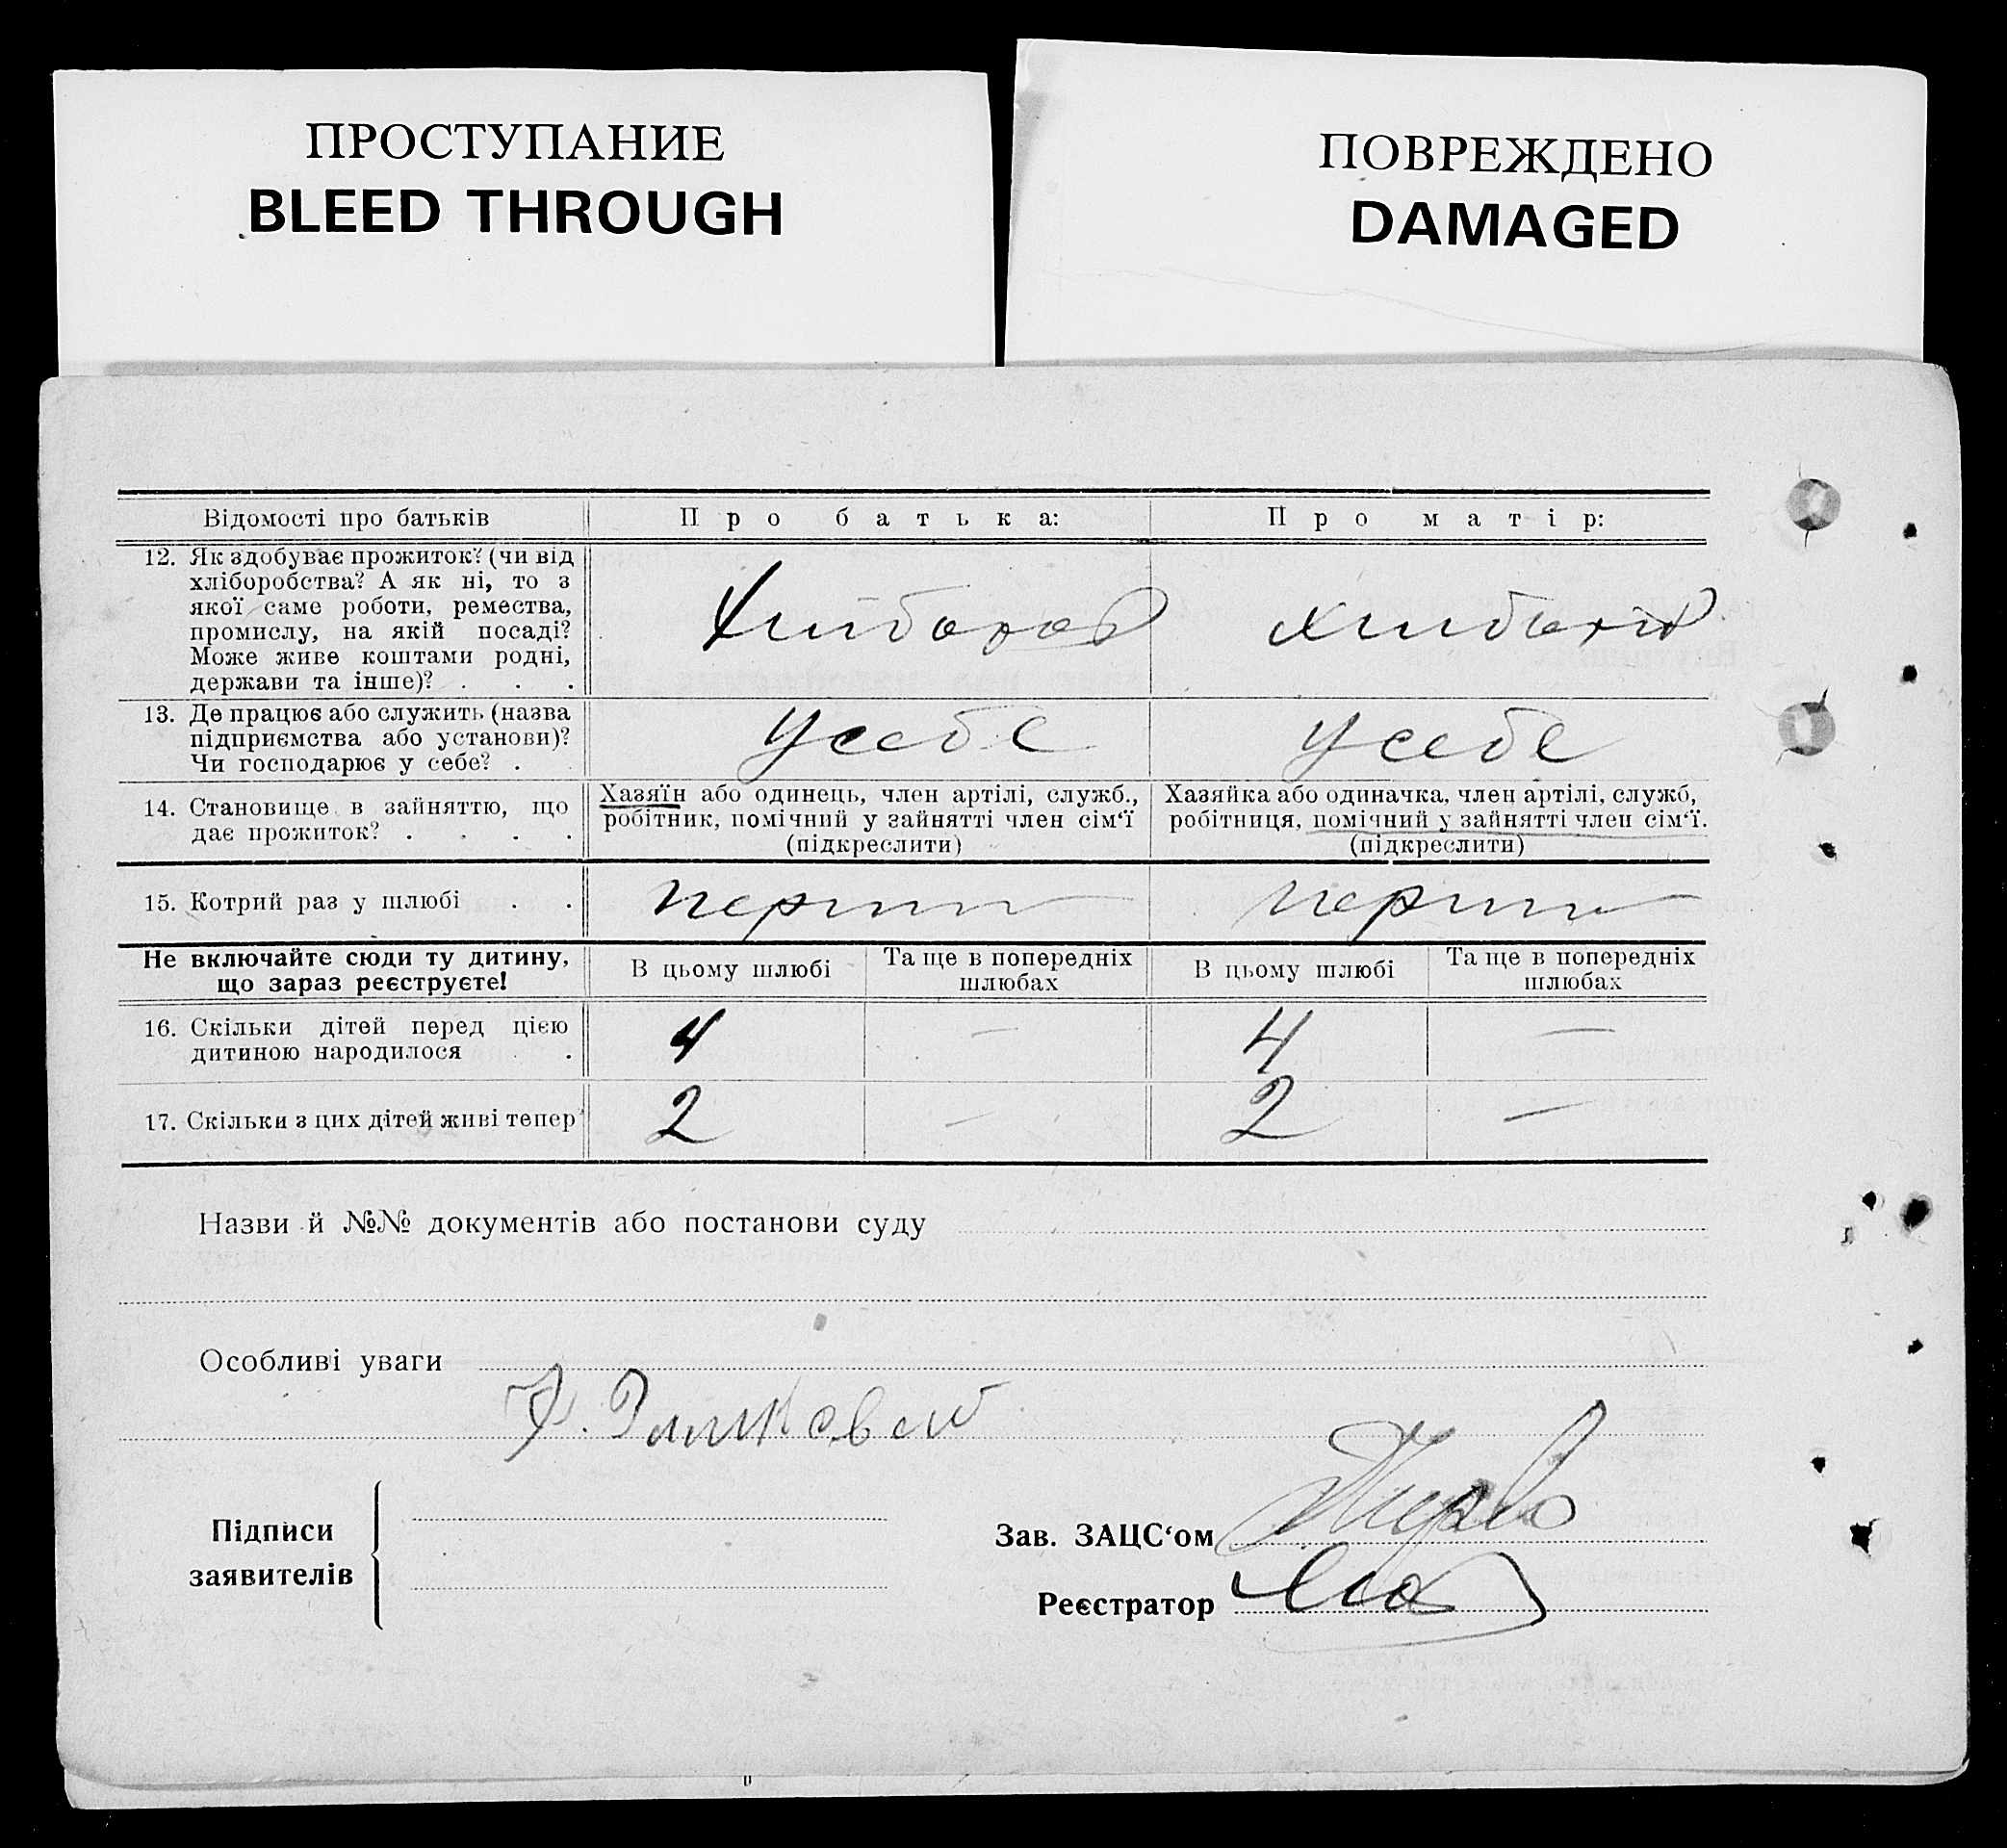 ПРОСТУПАНИЕ
BLEED THROUGH
ПОВРЕЖДЕНО
DAMAGED
Відомості про батьків
Про батька:
Про матір:
12. Як здобуває прожиток? (чи від
хліборобства? А як ні, то з
якої саме роботи, ремества,
промислу, на якій посаді?
Може живе коштами родні,
держави та інше)? . . .
хлібороб
13. Де працює або служить (назва
підприємства або установи)?
Чи господарює у себе? .
у себе
у себе
14. Становище в зайняттю, що
дає прожиток? . . . .
Хазяїн або одинець, член артілі, служб.,
робітник, помічний у зайнятті член сім‘ї
(підкреслити)
Хазяйка або одиначка, член артілі, служб,
робітниця, помічний у зайнятті член сім‘ї.
(підкреслити)
15. Котрий раз у шлюбі . .
перший
перший
Не включайте сюди ту дитину,
що зараз реєструєте!
В цьому шлюбі
Та ще в попередніх
шлюбах
В цьому шлюбі
Та ще в попередніх
шлюбах
16. Скільки дітей перед цією
дитиною народилося .
4
—
4
—
17. Скільки з цих дітей живі тепер
2
—
2
—
Назви й №№ документів або постанови суду
Особливі уваги
Підписи
заявителів
Зав. ЗАЦС‘ом
Реєстратор